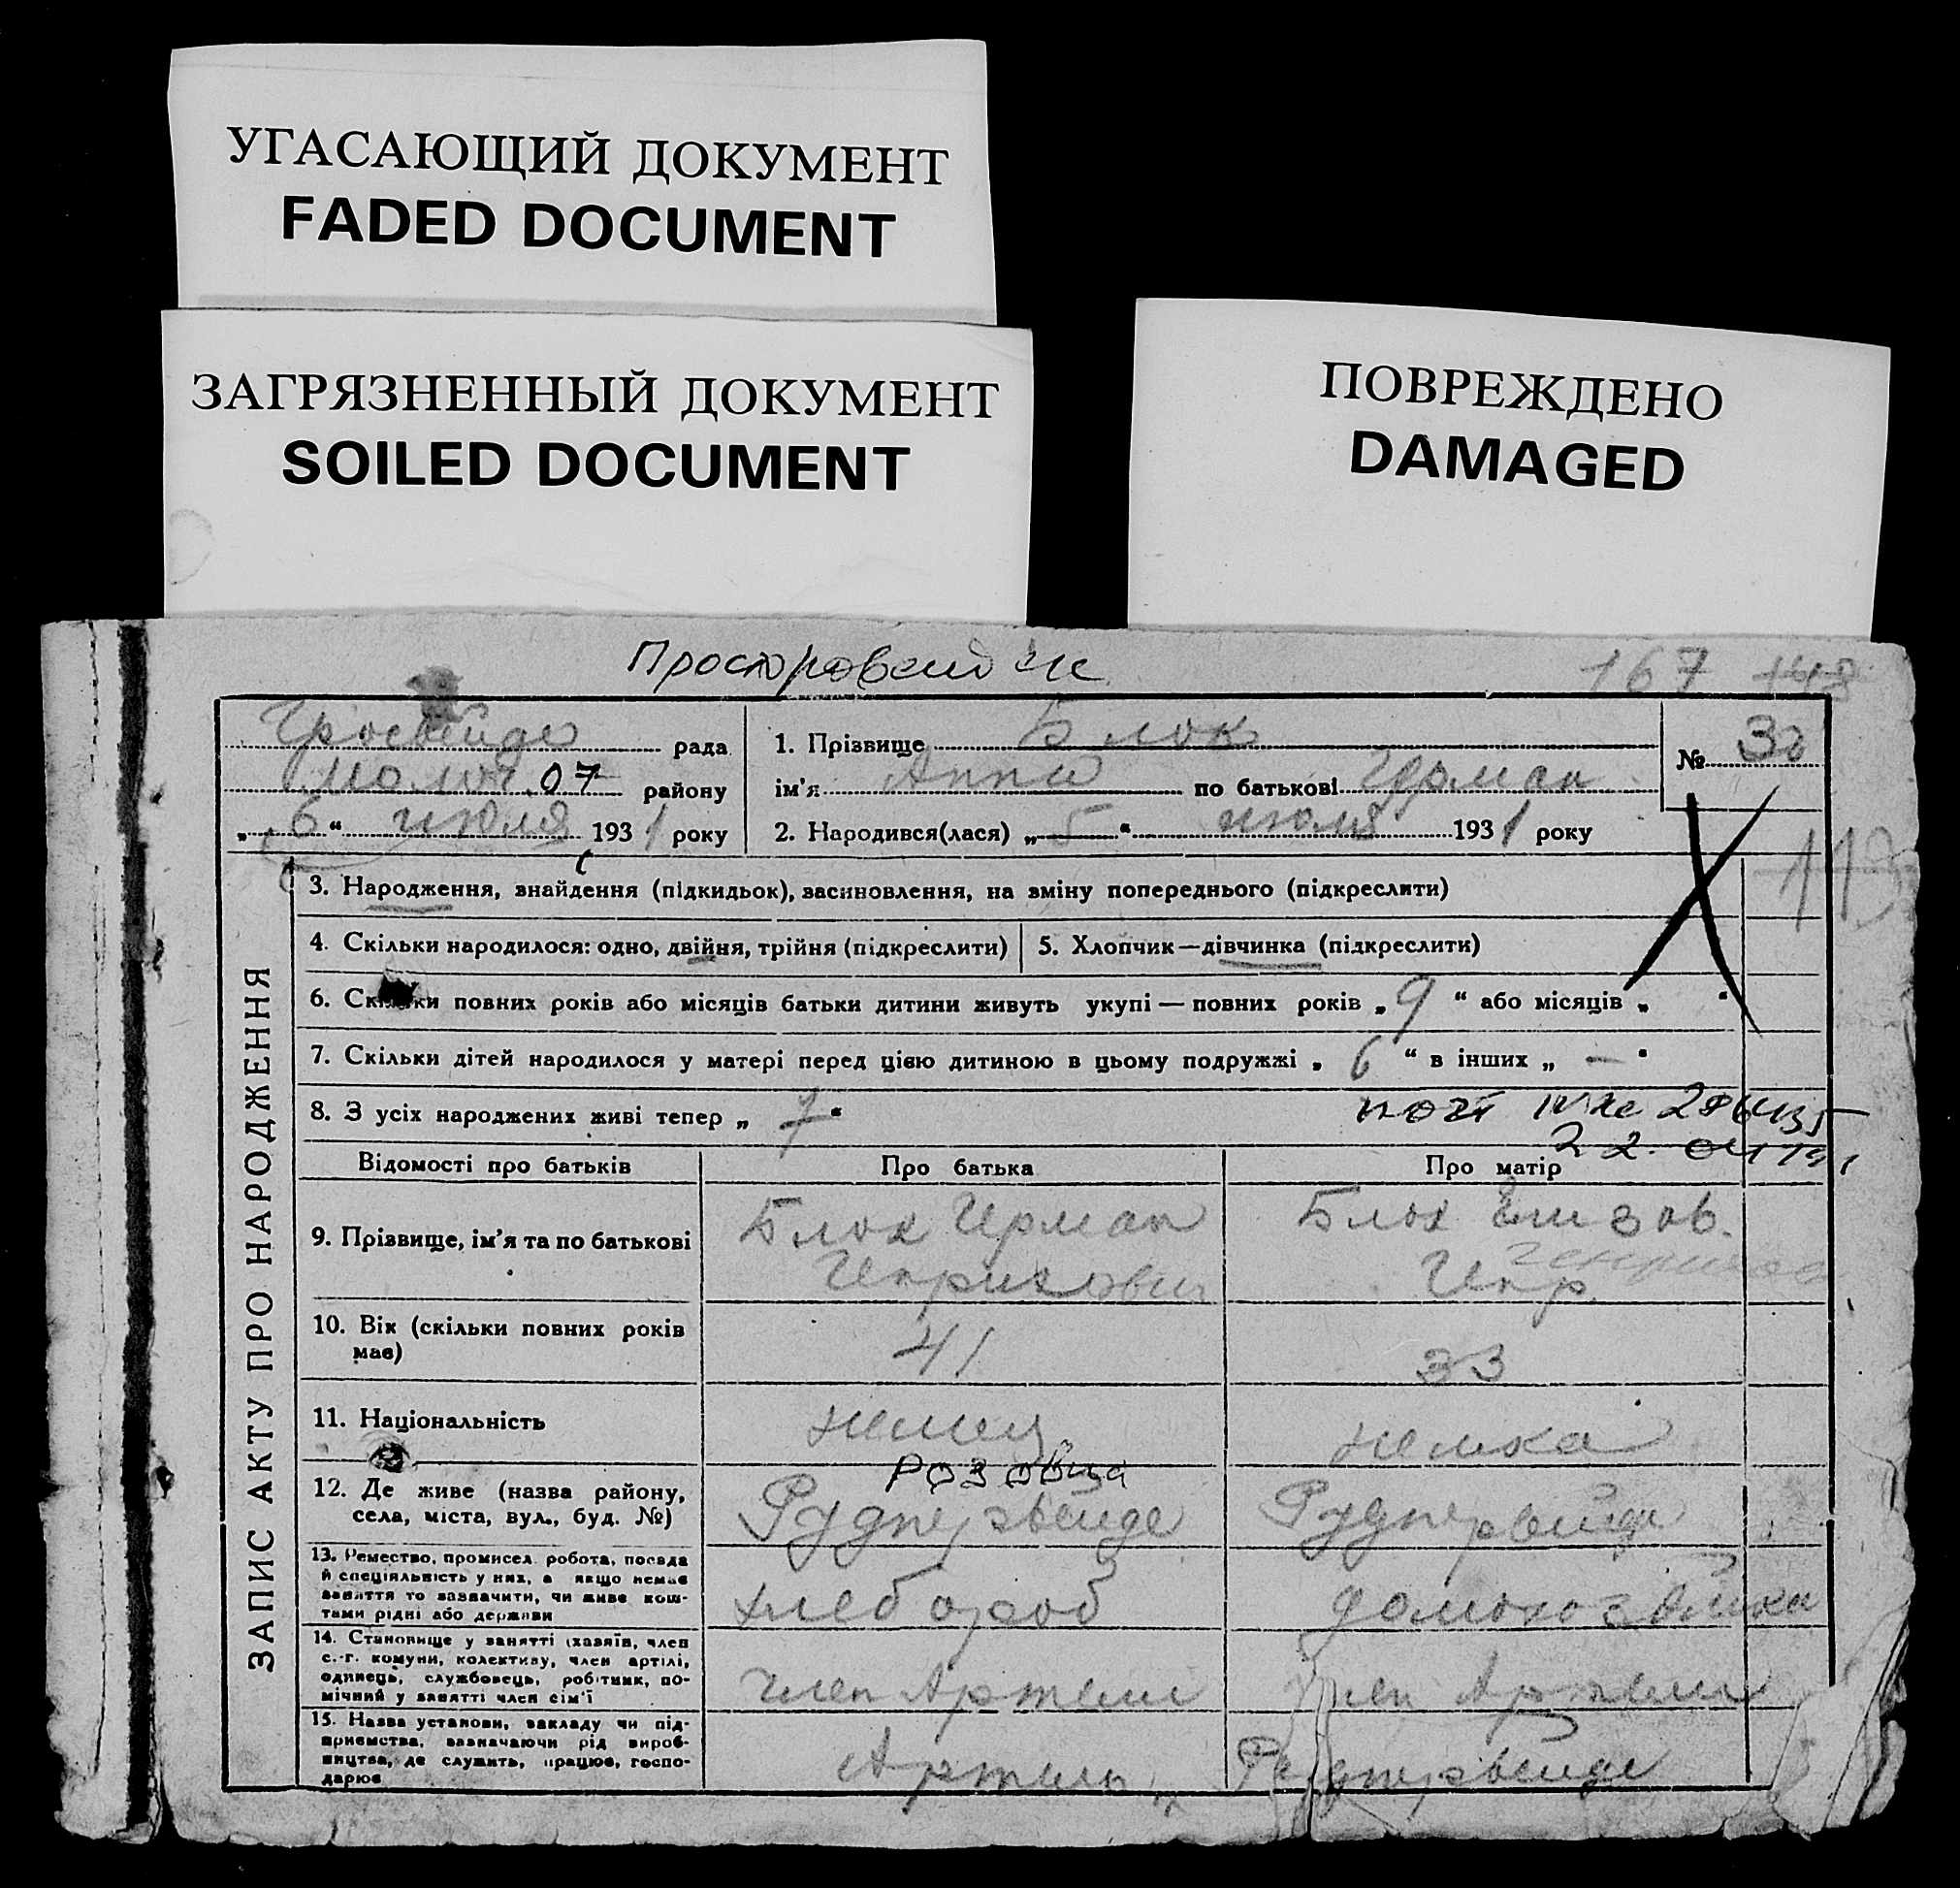 УГАСАЮЩИЙ ДОКУМЕНТ
FADED DOCUMENT
ЗАГРЯЗНЕННЫЙ ДОКУМЕНТ
SOILED DOCUMENT
ПОВРЕЖДЕНО
DAMAGED
167 148
ЗАПИС АКТУ ПРО НАРОДЖЕННЯ
Гросвейде рада
Молоч. 07 району
„6“ июля 1931 року
1. Прізвище Блок
ім'я Анна по батькові Герман
2. Народився(лася) „5“ июля 1931 року
№
3. Народження, знайдення (підкидьок), засиновлення, на зміну попереднього (підкреслити)
4. Скільки народилося: одно, двійня, трійня (підкреслити)
5. Хлопчик—дівчинка (підкреслити)
6. Скільки повних років або місяців батьки дитини живуть укупі — повних років „9“ або місяців „ “
7. Скільки дітей народилося у матері перед цією дитиною в цьому подружжі „6“ в інших „—“
8. З усіх народжених живі тепер „7“
Відомості про батьків
Про батька
Про матір
9. Прізвище, ім'я та по батькові
Блок Герман
Генрихович
Блок Елизав.
Генр.
10. Вік (скільки повних років
має)
41
33
11. Національність
немец
немка
12. Де живе (назва району,
села, міста, вул., буд. №)
Руднервейде
Руднервейде
13. Ремество, промисел, робота, посада
й спеціяльність у них, а якщо немає
заняття то зазначити, чи живе кош-
тами рідні або держави
хлебороб
домохозяйка
14. Становище у занятті (хазяїн, член
с.-г. комуни, колективу, член артілі,
одинець, службовець, робітник, по-
мічний у занятті член сім'ї
член Артели
член Артели
15. Назва установи, закладу чи під-
приємства, зазначаючи рід вироб-
ництва, де служить, працює, госпо-
дарює
Артель
Руднервейде